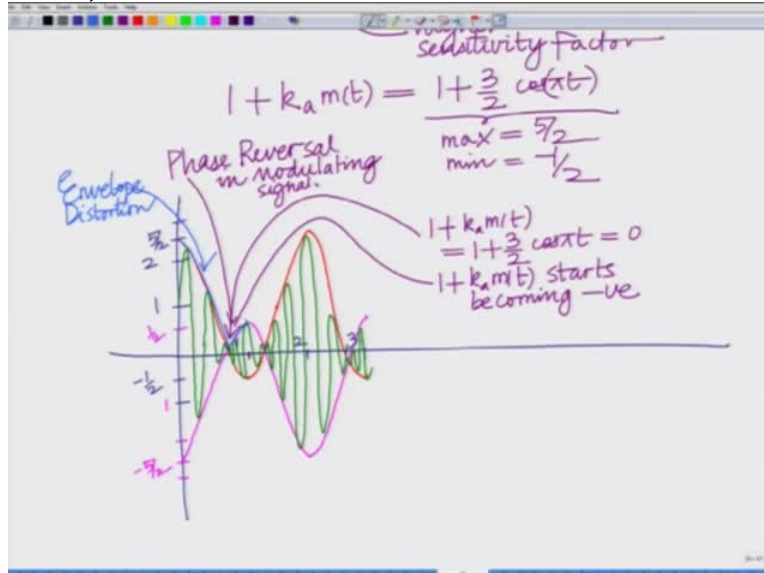 higher
sensitivity factor
1 + kₐ m(t) = 1 + 3/2 cos(πt)
max = 5/2
min = -1/2
Phase Reversal
in modulating
signal.
Envelope
Distortion
1 + kₐ m(t)
= 1 + 3/2 cos πt = 0
1 + kₐ m(t) starts
becoming -ve
5/2
2
1
1/2
2
3
-1/2
1
-5/2